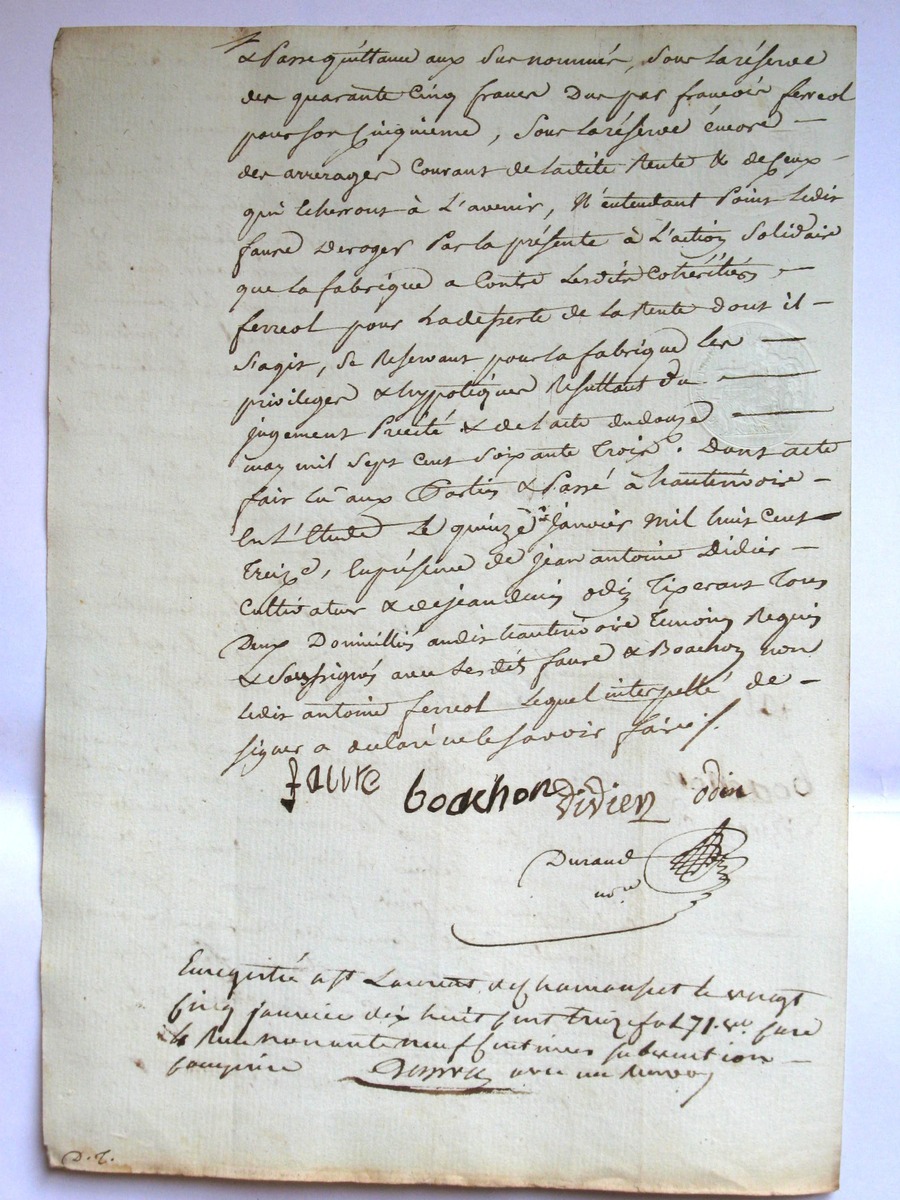 & Passe quittance aux Sus nommés, Sous la réserve
des quarante Cinq francs Dus par francois ferreol
pour son Cinquieme, Sous la réserve éncore
des arrerages Courant de ladite Rente & de Ceux
qui écherront à L'avenir, N'entendant Point Ledit
faure Deroger Par la présente à L'action Solidaire
que la fabrique a Contre Lesdits Cohéritiérs
ferreol pour La desserte de la Rente dont il
S'agit, Se Reservant pour la fabrique les
privileges & hypoteques Resultant du
jugement Précité & de L'acte du douze
may mil Sept Cent Soixante Trois. Dont acte
fait Lû aux Parties & Passé à hauterivoire
En L'étude Le quinze janvier mil huit Cent
Treize, En présence de Jean antoine Didier
Cultivateur & de jean Odin Tixerant Tous
Deux Domicilliés audit hauterivoire Temoins Requis
& Soussignés avec Lesdits faure & Boachon non
Ledit antoine ferreol Lequel interpellé de
Signer a declaré ne le Savoir faire ./
faure boachon didier odin
Durand
nore
Enregistré a St Laurent de Chamousset le vingt
Cinq janvier dix huit Cent treize fol 71 vo
quatre vingt nonante neuf Centimes subvention
Comprise avec un Renvoy
D. T.